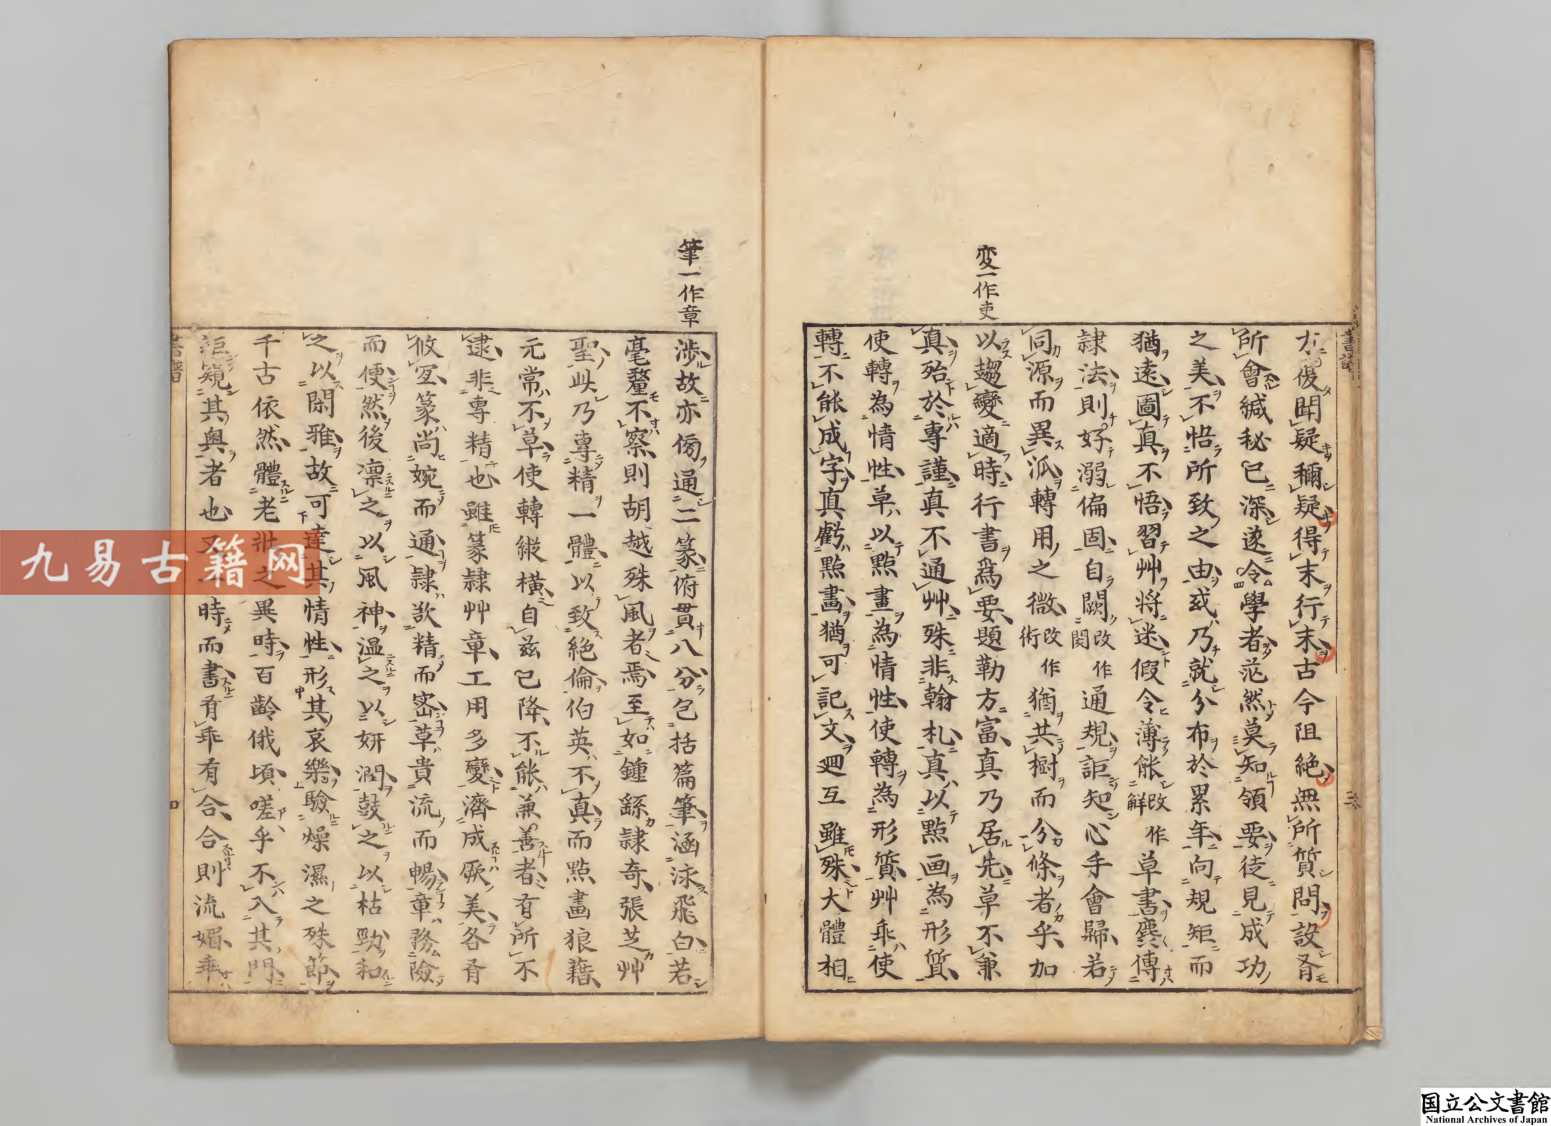 変一作吏
方復聞疑稱疑得末行末古今阻絶無所質問設有
所會緘秘已深遂令學者茫然莫知領要徒見成功
之美不悟所致之由或乃就分布於累年向規矩而
猶遠圖真不悟習艸將迷假令薄能改作解草書麁傳
隸法則好溺偏固自閡改作閲通規詎知心手會歸若
同源而異泒轉用之微改作術猶共樹而分條者乎加
以趨變適時行書爲要題勒方富真乃居先草不兼
真殆於專謹真不通艸殊非翰札真以點画為形質
使轉為情性草以點畫為情性使轉為形質艸乖使
轉不能成字真虧點畫猶可記文廻互雖殊大體相
筆一作章
渉故亦傍通二篆俯貫八分包括篇筆涵泳飛白若
毫釐不察則胡越殊風者焉至如鍾繇隸奇張芝艸
聖此乃專精一體以致絶倫伯英不真而點畫狼藉
元常不草使轉縱橫自茲已降不能兼善者有所不
逮非專精也雖篆隸艸章工用多變濟成厥美各有
攸宜篆尚婉而通隸欲精而密草貴流而暢章務險
而便然後凛之以風神温之以妍潤鼓之以枯勁和
之以閑雅故可達其情性形其哀樂驗燥濕之殊節
千古依然體老壯之異時百齡俄頃嗟乎不入其門
詎窺其奥者也又一時而書有乖有合合則流媚乖
書譜
四
九易古籍网
国立公文書館
National Archives of Japan